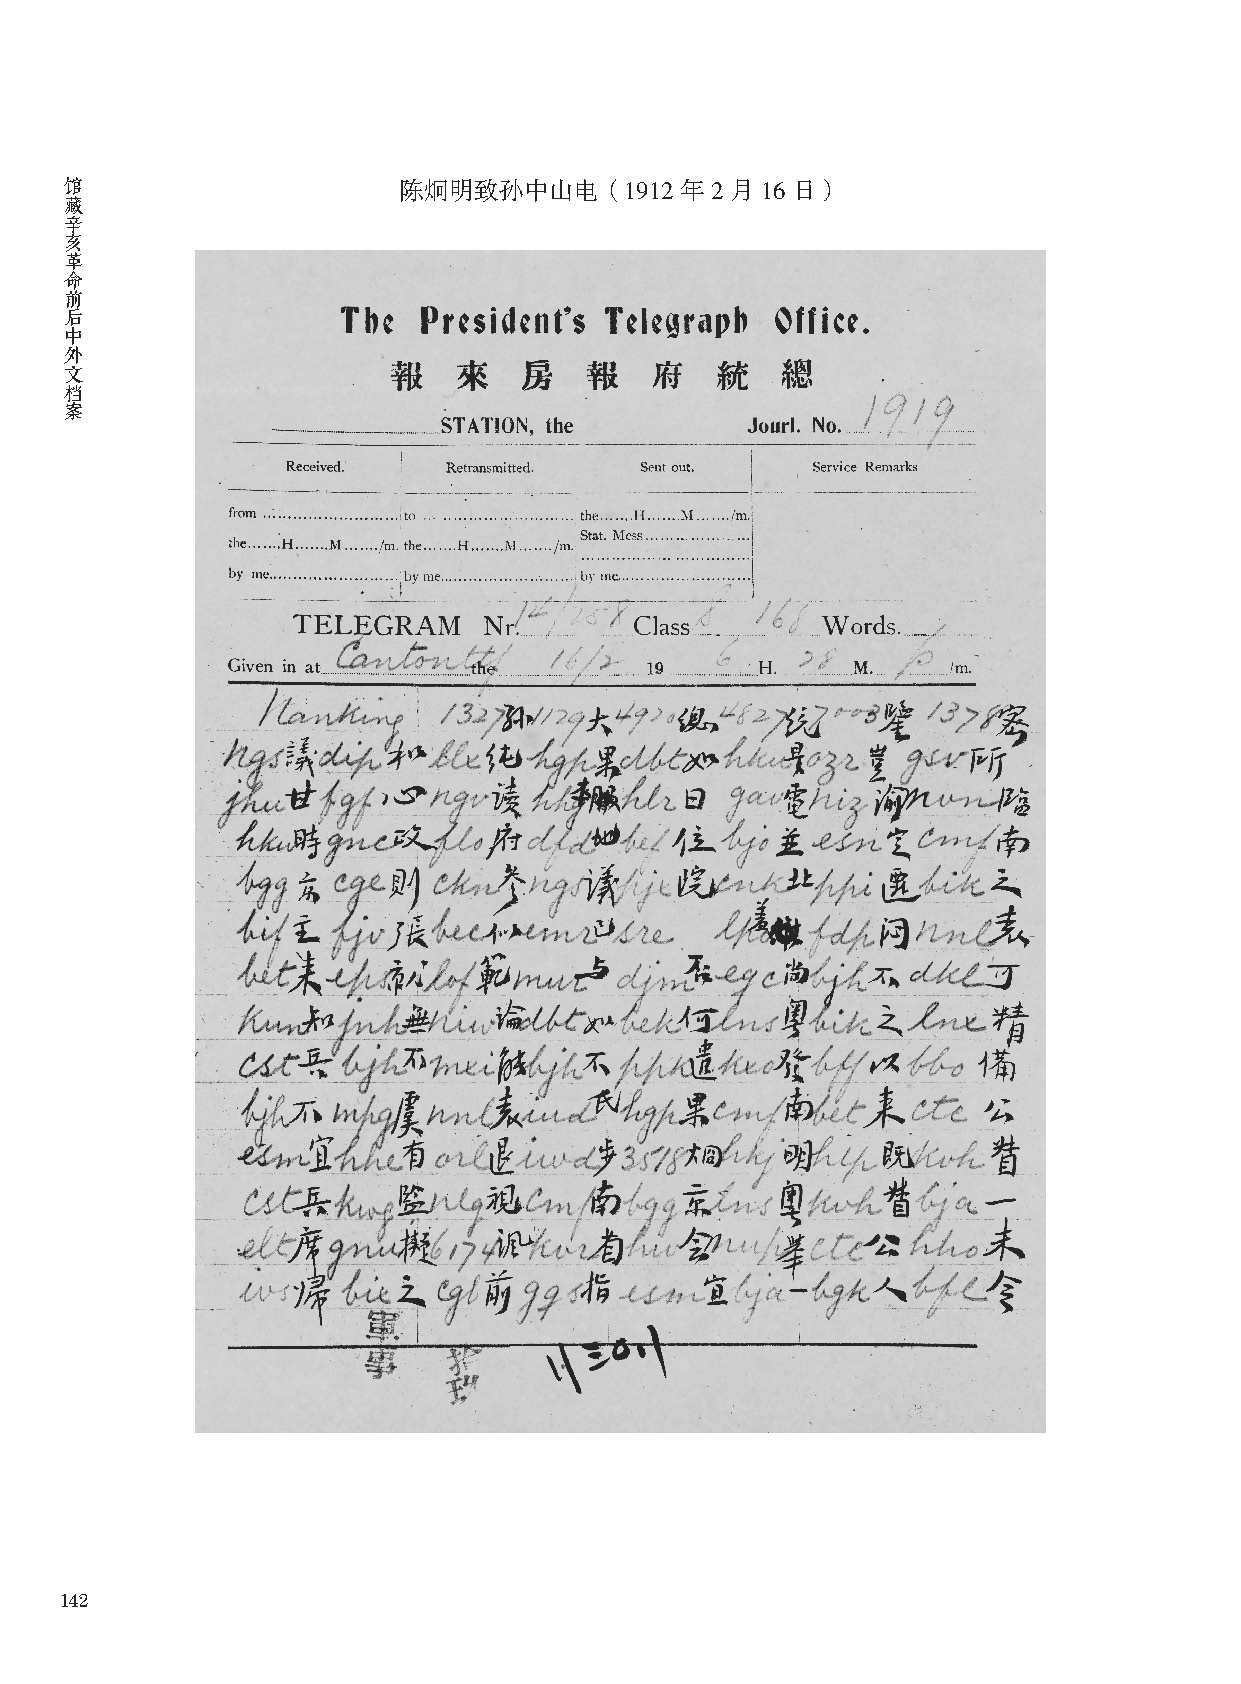 馆藏辛亥革命前后中外文档案
陈炯明致孙中山电（1912 年 2 月 16 日）
The President's Telegraph Office.
報 來 房 報 府 統 總
STATION, the Jourl. No. 1919
Received. Retransmitted. Sent out. Service Remarks
from to the H. M. /m.
Stat. Mess
the H. M. /m. the H. M. /m.
by me by me by me
TELEGRAM Nr. 14/258 Class 8 168 Words.
Given in at Canton the 16/2 19 6 H. 28 M. p /m.
Nanking 1327孙1129大4920總4827统7003鑒1378密
ngs議dip和llx純hgp果dbt如hku是ozr豈gsv所
jhu甘fgf心ngv读hlr日gav電niz谕nvn臨
hku時gnc政flo府dfd地bef位bjo並esn定cmf南
bgg京cge則ckn參ngs議pjx院cnk北ppi選bik之
bif主fjv張bec似emr已sre fdp闷nnl表
bet来lof範mut与djm否egc尚bjh不dkl可
kun知jnh無niw論dbt如bek何lns粤bik之lnx精
cst兵bjh不mxi能bjh不ppk遣kxo發bff以bbo備
bjh不mpg虞nnl表iud民hgp果cmf南bet来ctc公
esm宜hhe有orl退iwd步3518炯hkj明hip既kvh督
cst兵kwg監nlq視cmf南bgg京lns粤kvh督bja一
elt席gnu擬6174諷kvr省hw会nup舉ctc公hho未
ivs归bie之cgl前ggs指esm宜bja一bgk人bfl令
142